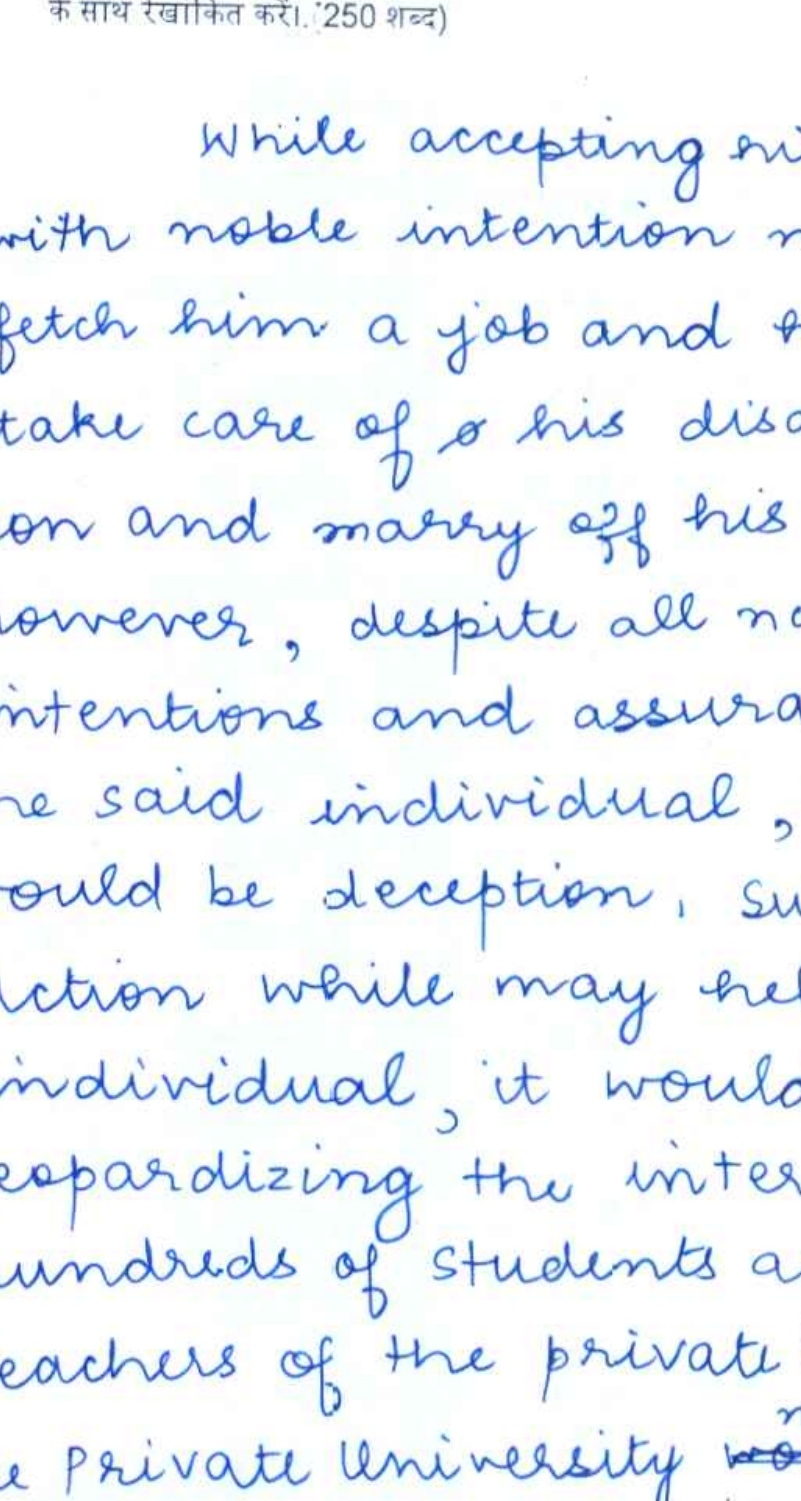 के साथ रेखांकित करें। (250 शब्द)
While accepting
with noble intention
fetch him a job and
take care of his
on and marry off his
however, despite all
intentions and
he said individual,
would be deception.
action while may
individual, it would
jeopardizing the
hundreds of students
teachers of the private
private University